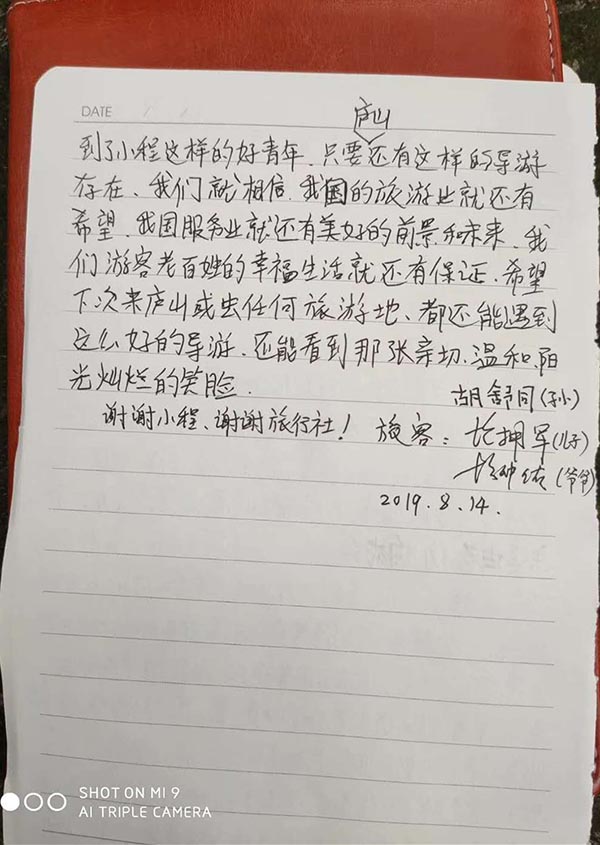 DATE
庐山
到了小程这样的好青年、只要还有这样的导游
存在、我们就相信、我国的旅游业就还有
希望、我国服务业就还有美好的前景和未来、我
们游客老百姓的幸福生活就还有保证、希望
下次来庐山或去任何旅游地、都还能遇到
这么好的导游、还能看到那张亲切、温和、阳
光灿烂的笑脸.
胡舒同(孙)
谢谢小程、谢谢旅行社! 旅客:拥军(儿子)
(爷爷)
2019.8.14.
SHOT ON MI 9
AI TRIPLE CAMERA